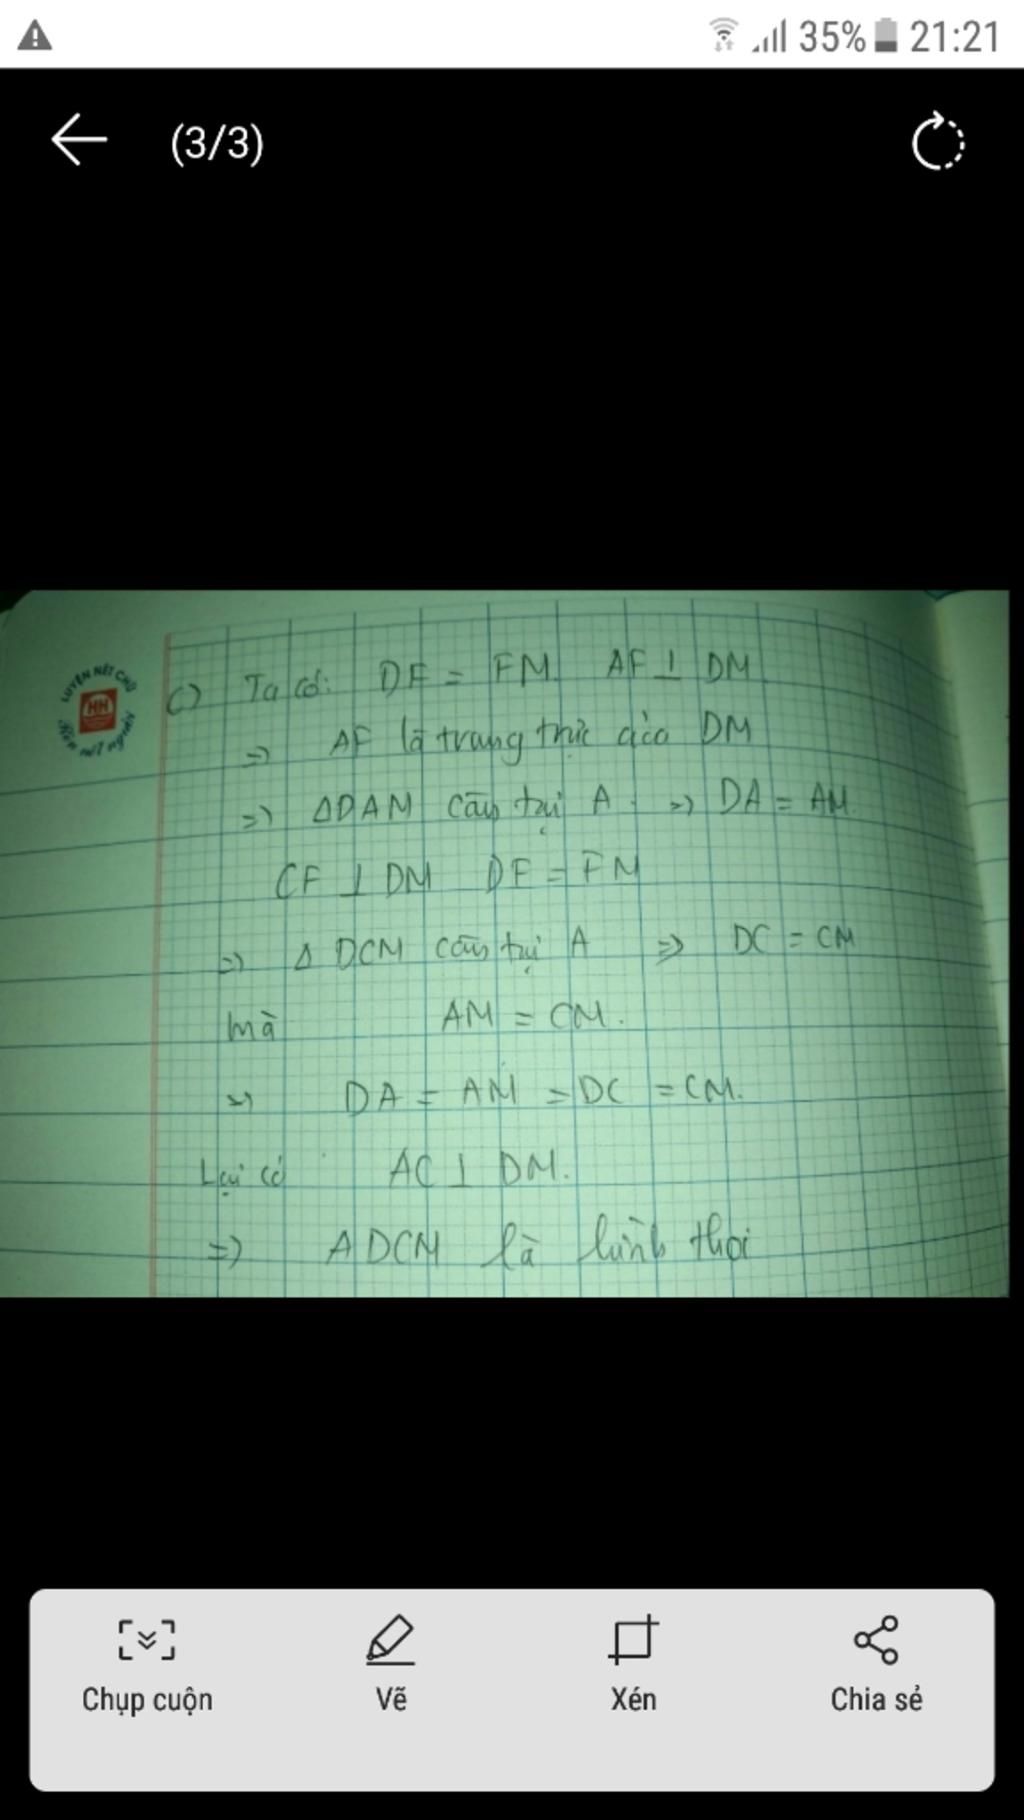 35% 21:21
(3/3)
LUYỆN NÉT CHỮ
HH
Rèn nết người
c) Ta có: DF = FM AF ⊥ DM
=> AF là trung trực của DM
=> ΔDAM cân tại A. => DA = AM.
CF ⊥ DM DF = FM
=> Δ DCM cân tại A => DC = CM
mà AM = CM.
=> DA = AM = DC = CM.
Lại có AC ⊥ DM.
=> ADCM là hình thoi
Chụp cuộn Vẽ Xén Chia sẻ